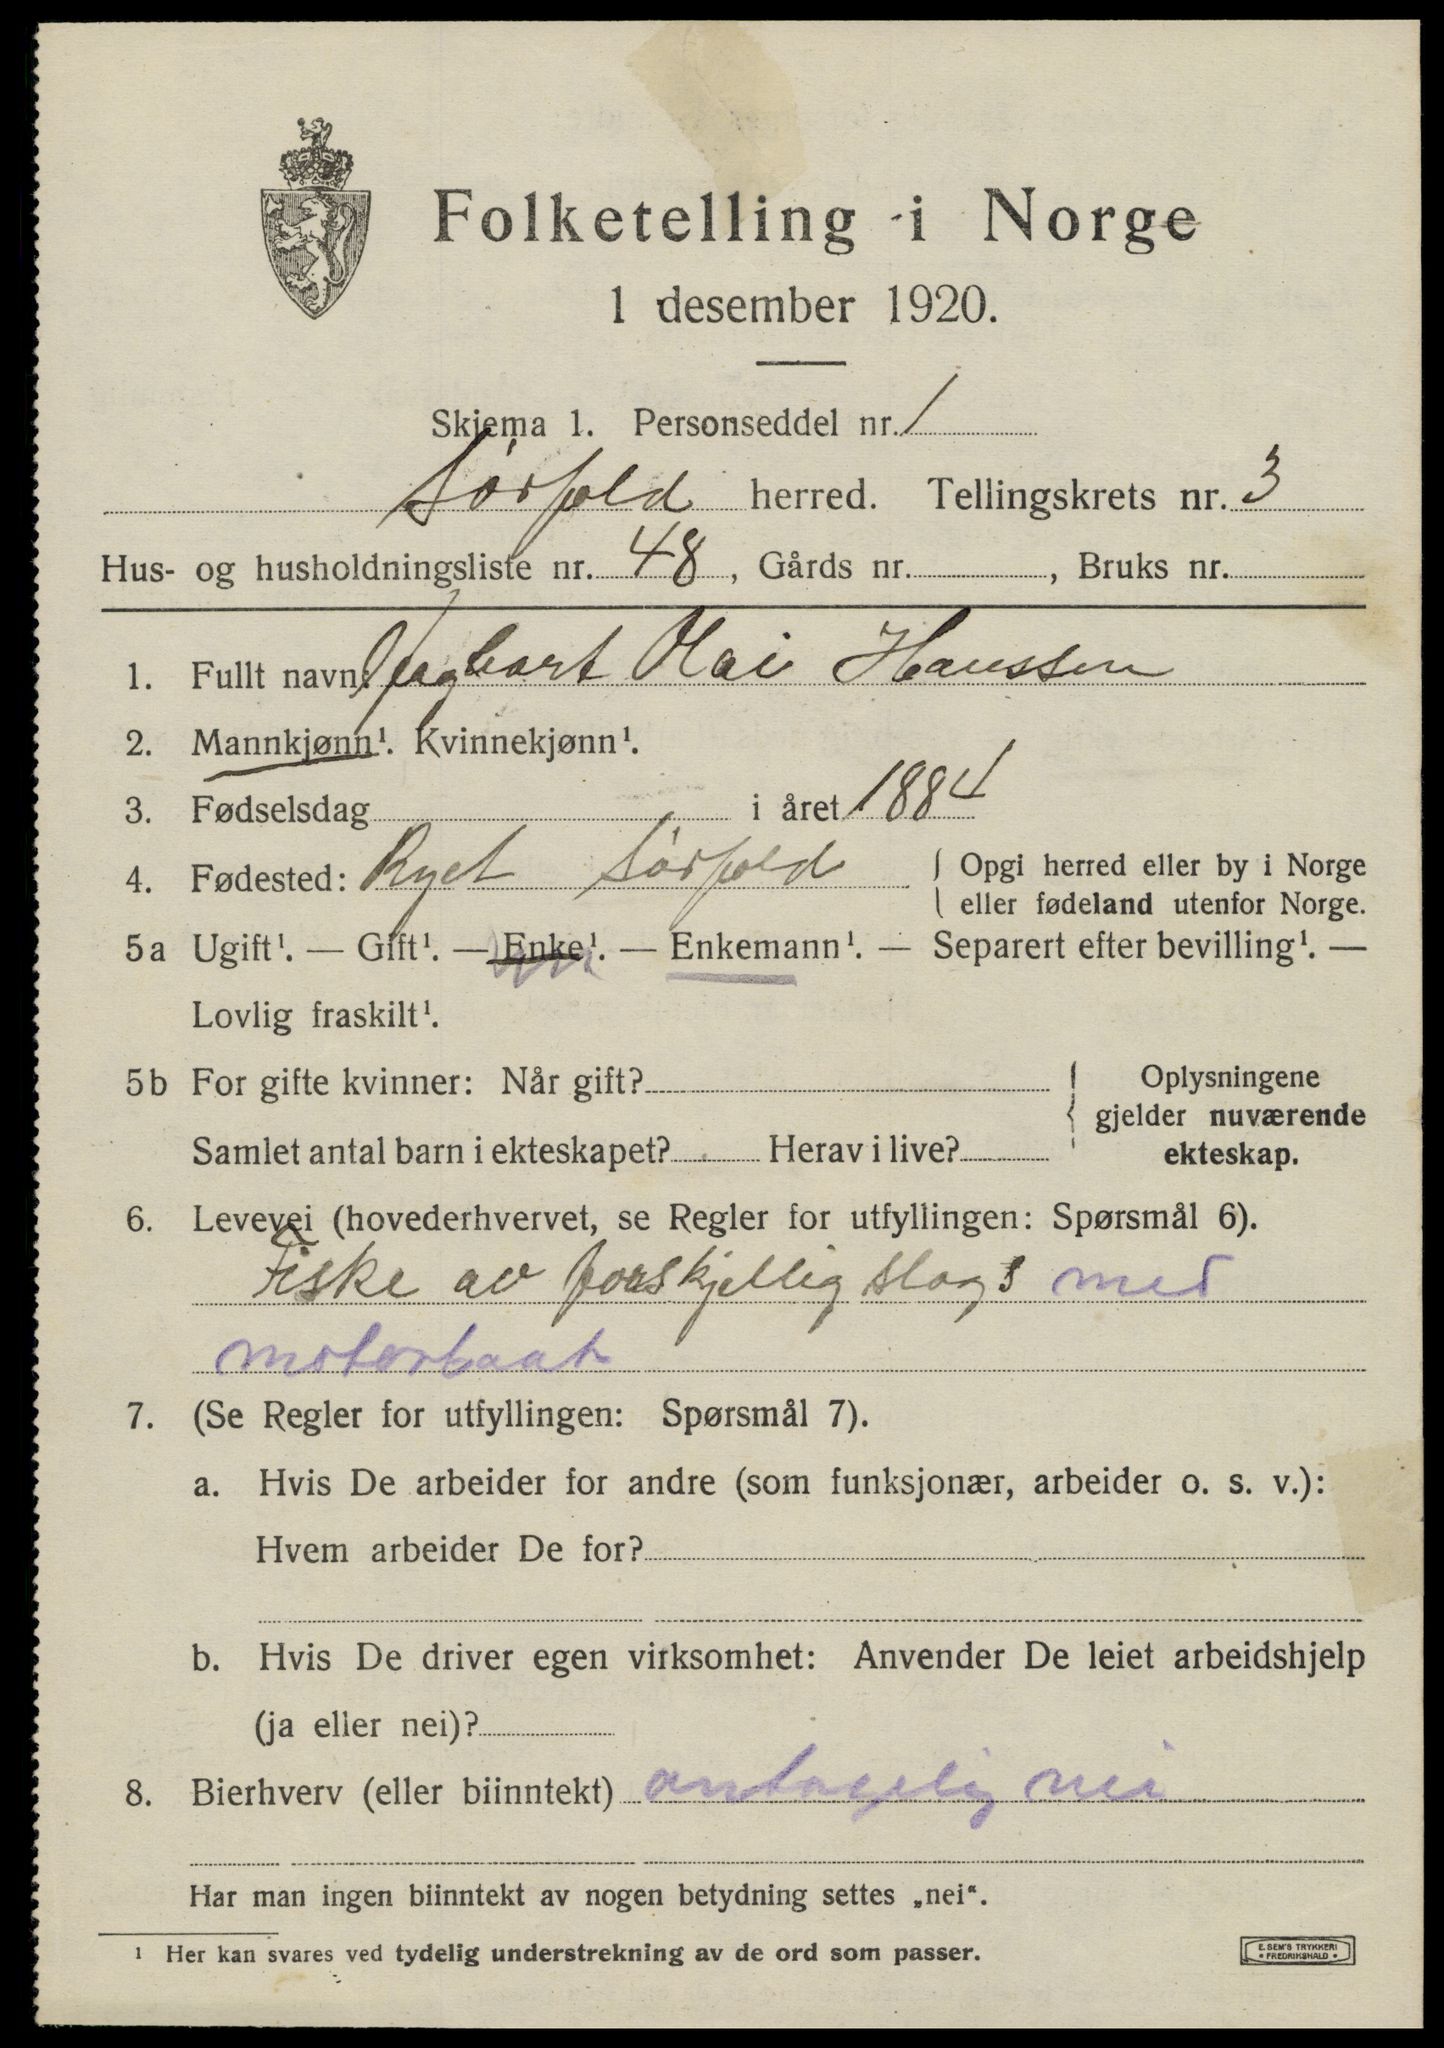 Folketelling i Norge
1 desember 1920.
Skjema 1. Personseddel nr. 1
Sørfold herred. Tellingskrets nr. 3
Hus- og husholdningsliste nr. 48, Gårds nr. , Bruks nr.
1. Fullt navn: Olai Hanssen
2. Mannkjønn¹. Kvinnekjønn¹.
3. Fødselsdag i året 1884
4. Fødested: Ryet Sørfold { Opgi herred eller by i Norge
eller fødeland utenfor Norge.
5a Ugift¹. — Gift¹. — Enke¹. — Enkemann¹. — Separert efter bevilling¹. —
Lovlig fraskilt¹.
5b For gifte kvinner: Når gift? { Oplysningene
gjelder nuværende
Samlet antal barn i ekteskapet? Herav i live? ekteskap.
6. Levevei (hovederhvervet, se Regler for utfyllingen: Spørsmål 6).
Fiske av forskjellig slags med
motorbaat
7. (Se Regler for utfyllingen: Spørsmål 7).
a. Hvis De arbeider for andre (som funksjonær, arbeider o. s. v.):
Hvem arbeider De for?
b. Hvis De driver egen virksomhet: Anvender De leiet arbeidshjelp
(ja eller nei)?
8. Bierhverv (eller biinntekt) antagelig nei
Har man ingen biinntekt av nogen betydning settes „nei“.
¹ Her kan svares ved tydelig understrekning av de ord som passer.
E. SEM'S TRYKKERI
• FREDRIKSHALD •